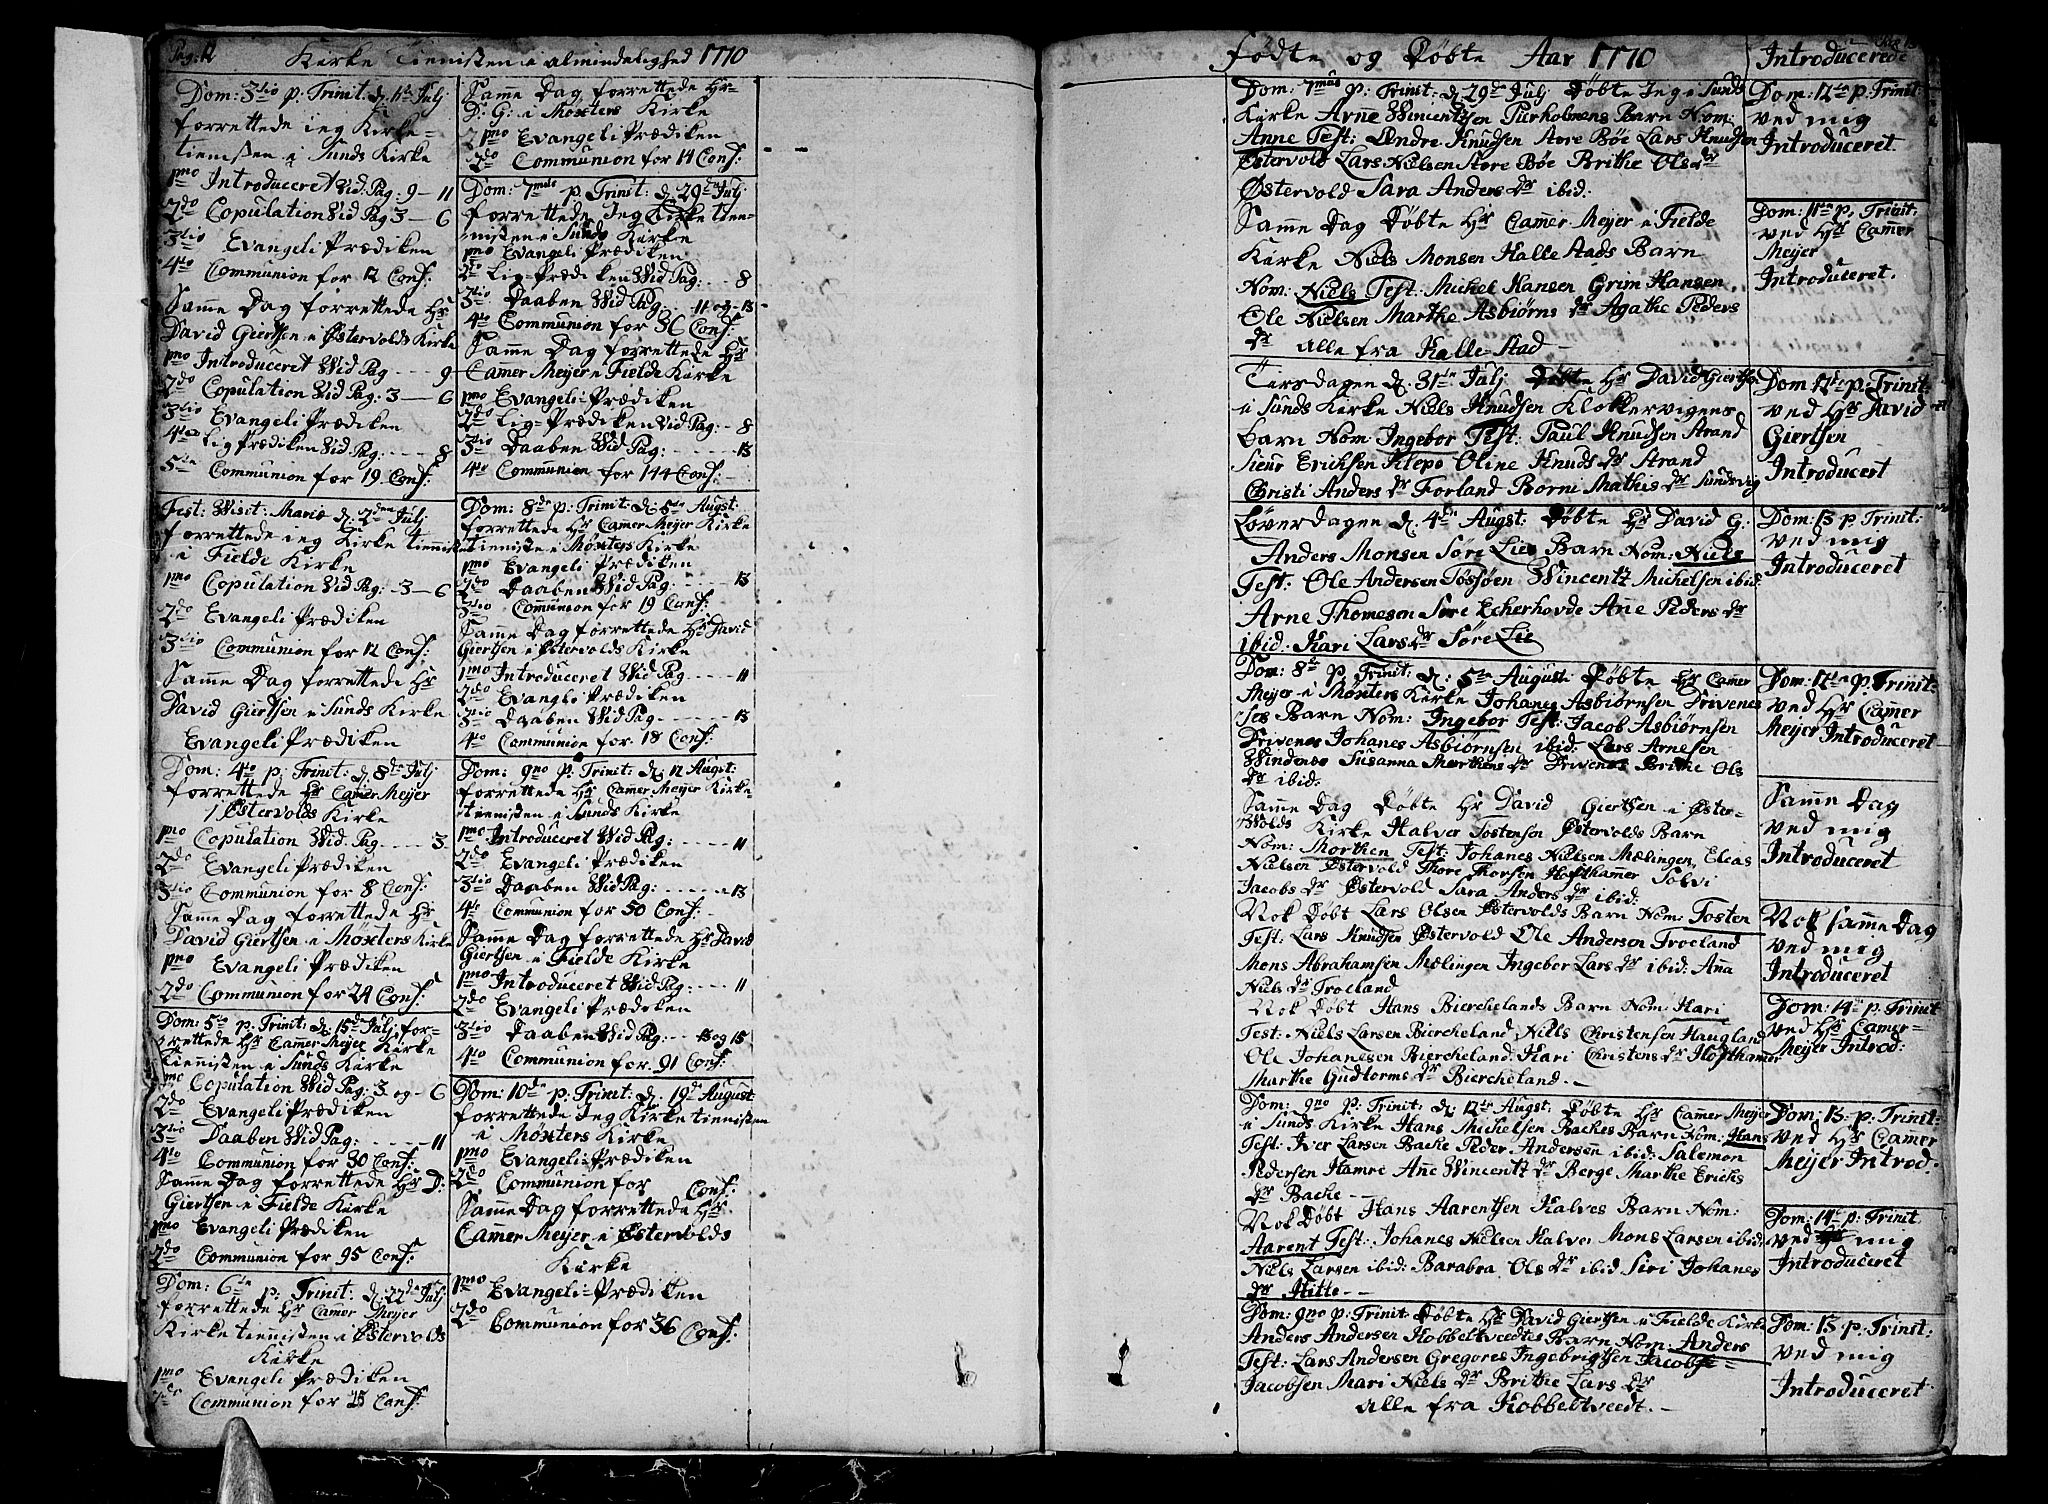 Pag: 12
Kirke Tienisten i almindelighed 1770
Dom: 3tio p: Trinit: d. 1ste Julj
forrettede ieg Kirke-
tienisten i Sunds Kirke
1mo Introduceret Vid Pag. 9 - 11
2do Copulation Vid Pag 3 - 6
3tio Evangeli Prædiken
4to Communion for 12 Conf:
Samme Dag forrettede Hr
David Giertsen i Østervolds Kirke
1mo Introduceret Vid Pag - - - 9
2do Copulation Vid Pag. 3 - 6
3tio Evangeli Prædiken
4to Lig Prædiken Vid Pag: - - - 8
5te Communion for 19 Conf:
Fest: Visit: Mariæ d. 2den Julj
forrettede ieg Kirke tienniste
i Fielde Kirke
1mo Copulation Vid Pag: - 3 - 6
2do Evangeli Prædiken
3tio Communion for 12 Conf:
Samme Dag forrettede Hr
David Giertsen i Sunds Kirke
Evangeli Prædiken
Dom: 4to p: Trinit: d. 8de Julj
forrettede Hr Camer Meyer
i Østervolds Kirke
1mo Copulation Vid Pag - - - 3
2do Evangeli Prædiken
3tio Communion for 8 Conf:
Same Dag forrettede Hr
David Giertsen i Møxters Kirke
1mo Evangeli Prædiken
2do Communion for 24 Conf:
Dom: 5to p: Trinit: d. 15de Julj for-
rettede Hr Camer Meyer Kirke
Tiennisten i Sunds Kirke
1mo Copulation Vid Pag: 3 og - 6
2do Evangeli Prædiken
3tio Daaben Vid Pag: - - - - 11
4to Communion for 30 Conf:
Samme Dag forrettede Hr D:
Giertsen i Fielde Kirke
1mo Evangeli Prædiken
2do Communion for 95 Conf:
Dom: 6te p: Trinit: d. 22de Julj
forrettede Hr Camer Meyer
Kirke tiennisten i Østervolds
Kirke
1mo Evangeli Prædiken
2do Communion for 25 Conf:
Samme Dag forrettede Hr-
D: G: i Møxters Kirke
1mo Evangeli Prædiken
2do Communion for 14 Conf:
Dom: 7mo p: Trinit: d. 29de Julj
forrettede Jeg Kirke tien-
nisten i Sunds Kirke
1mo Evangeli Prædiken
2do Lig-Prædiken Vid Pag - - 8
3tio Daaben Vid Pag. - - 11 og - 13
4to Communion for 36 Conf:
Samme Dag forrettede Hr
Camer Meyer i Fielde Kirke
1mo Evangeli-Prædiken
2do Lig-Prædiken Vid Pag: - 8
3tio Daaben Vid Pag: - - - - 13
4to Communion for 144 Conf: -
Dom: 8de p: Trinit: d: 5te Augst:
forrettede Hr Camer Meyer Kirke
tienniste i Møxters Kirke
1mo Evangeli Prædiken
2do Daaben Vid Pag: - - - - - 13
3tio Communion for 19 Conf:
Samme Dag forrettede Hr David
Giertsen i Østervolds Kirke
1mo Introduceret Vid Pag - - - 11
2do Evangli Prædiken
3tio Daaben Vid Pag - - - - - - 13
4to Communion for. 18 Conf:
Dom: 9no p: Trinit: d. 12 Augst:
forrettede Hr Camer Meyer Kirke-
tiennisten i Sunds Kirke
1mo Introduceret Vid Pag: - - - 11
2do Evangeli Prædiken
3tio Daaben Vid Pag: - - - - - 13
4to Communion for 50 Conf: -
Samme Dag forrettede Hr David
Giertsen i Fielde Kirke
1mo Introduceret Vid Pag: - - - 11
2do Evangeli Prædeken
3tio Daaben Vid Pag: - - 13 og 15
4to Communion for. 91 Conf:
Dom: 10de p: Trinit: d. 19de August
forrettede Jeg Kirke tiennisten
i Møxters Kirke
1mo Evangeli-Prædiken
2do Communion for Conf:
Samme Dag forrettede Hr.
Camer Meyer i Østervolds
Kirke
1mo Evangeli-Prædiken
2do Communion for 36 Conf:
Fødte og Døbte Aar 1770
Introducerede
Dom: 7mus p: Trinit: d. 29de Julj Døbte Jeg i Sunds
Kirke Arne Vincentzsen Pierholmens Barn Nom:
Anne Test: Andre Knudsen Store Bøe Lars Knudsen
Østervold Lars Nielsen Store Bøe Brithe Ols dr
Østervold Sara Anders dr ibid:
Samme Dag Døbte Hr Camer Meyer i Fielde
Kirke Niels Monsen Kalle Stads Barn
Nom: Niels Test: Michel Hansen Grim Hansen
Ole Nielsen Marthe Asbiørns dr Agathe Peders
dr alle fra Kalle-Stad -
Tirsdagen d. 31te Julj Døbte Hr David Giertsen
i Sunds Kirke Niels Knudsen Klokkervigens
barn Nom: Ingebor Test: Paul Knudsen Strand
Sieur Ericksen Klepø Oline Knuds dr Strand
Christi Anders dr Forland Borni Mathis dr Sundsvig
Løverdagen d. 4de Augst: Døbte Hr David G:
Anders Monsen Søre Lies Barn Nom: Niels
Test: Ole Andersen Tøssøen Vincentz Michelsen ibid:
Arne Thomesen Søre Echerhovde Ane Peders dr
ibid: Kari Lars dr Søre Lie
Dom: 8de p. Trinit: d: 5te August Døbte Hr Camer
Meyer i Møxters Kirke Johanes Asbiørnsen Drivenes
Barn Nom: Ingebor Test: Jacob Asbiørnsen
Drivenes Johanes Asbiørnsen ibid: Lars Arnesen
Vindenes Susanna Morthens dr Drivenes Brithe Ols
dr ibid:
Samme Dag Døbte Hr David Giertsen i Øster-
Volds Kirke Halver Tostensen Østervolds Barn
Nom: Morthen Test: Johanes Nielsen Mælingen, Elias
Nielsen Østervold Thore Thorsen Hofthamer Sølvi
Jacobs dr Østervold Sara Anders dr ibid:
Nok Døbt Lars Olsen Østervolds Barn Nom: Tosten
Test: Lars Knudsen Østervold Ole Andersen Troeland
Mons Abrahamsen Mælingen Ingebor Lars dr ibid: Ana
Niels dr Troeland
Nok Døbt Hans Bierchelands Barn Nom: Kari
Test: Niels Larsen Biercheland Niels Christensen Haugland
Ole Johanesen Biercheland Kari Christens dr Hofthamer
Marthe Gudtorms dr Biercheland. -
Dom: 9no p: Trinit: d. 12te Augst: Døbte Hr Camer Meyer
i Sunds Kirke Hans Michelsen Baches Barn Nom: Hans
Test: Iver Larsen Bache Peder Andersen ibid: Salemon
Pedersen Hamre Ane Vincentz dr Berge Marthe Erichs
dr Bache -
Nok Døbt Hans Aarentsen Kalves Barn Nom:
Aarent Test: Johanes Nielsen Kalve Mons Larsen ibid:
Niels Larsen ibid: Barabra Ols dr ibid Siri Johanes
dr Hitte - -
Dom: 9no p: Trinit Døbte Hr David Giertsen i Fielde Kirke
Anders Andersen Kobbeltveedtes Barn Nom: Anders
Test: Lars Andersen Gregores Ingebrigtsen Jacob
Jacobsen Mari Niels dr Brithe Lars dr
alle fra Kobbeltveedt. -
Dom: 12te p: Trinit:
ved mig
Introduceret.
Dom: 11te p: Trinit:
ved Hr Camer
Meyer
Introduceret.
Dom: 12te p: Trinit:
ved Hr David
Giertsen
Introducert
Dom: 13 p: Trinit:
ved mig
Introduceret
Dom: 12te p: Trinit:
ved Hr Camer
Meyer Introduceret
Samme Dag
ved mig
Introduceret
Nok samme Dag
ved mig
Introduceret
Dom: 14de p: Trinit
ved Hr Camer-
Meyer Introd:
Dom: 13: p: Trinit:
ved Hr Camer
Meyer Introd:
Dom: 14de p: Trinit
ved mig
Introduceret
Dom: 13 p: Trinit:
ved mig
Introduceret